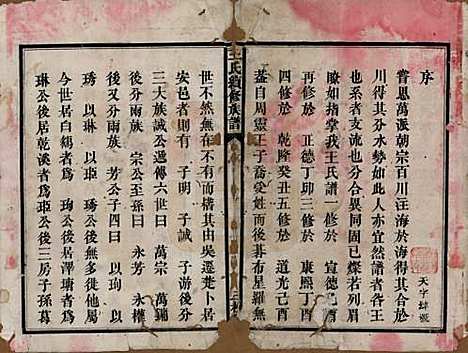 序
嘗思萬派朝宗百川汪海於海得其合於
川得其分水勢如此人亦宜然譜者各王
也系者支流也分合異同固已燦若列眉
瞭如指掌我王氏譜一修於 宣德己酉
再修於 正德丁卯三修於 康熙丁酉
四修於 乾隆癸丑五修於 道光己酉
蓋自周靈王子喬受姓而後碁布星羅無
天字肆號
王氏續修族譜
序
世不然無在不有由吳遷楚卜居
安邑則有 子明 子誠 子游後分
三大族誠公遞傳六世曰 萬宗 萬鏞
後分兩族 宗公至孫曰 永芳 永權
後又分兩族 芳公子四曰 以珣 以
琇 以琳 以璖 琇公後於
世居白鶴者爲 珣公後居澤瑭者爲
琳公後居乾溪者爲 公後二房子孫蕃